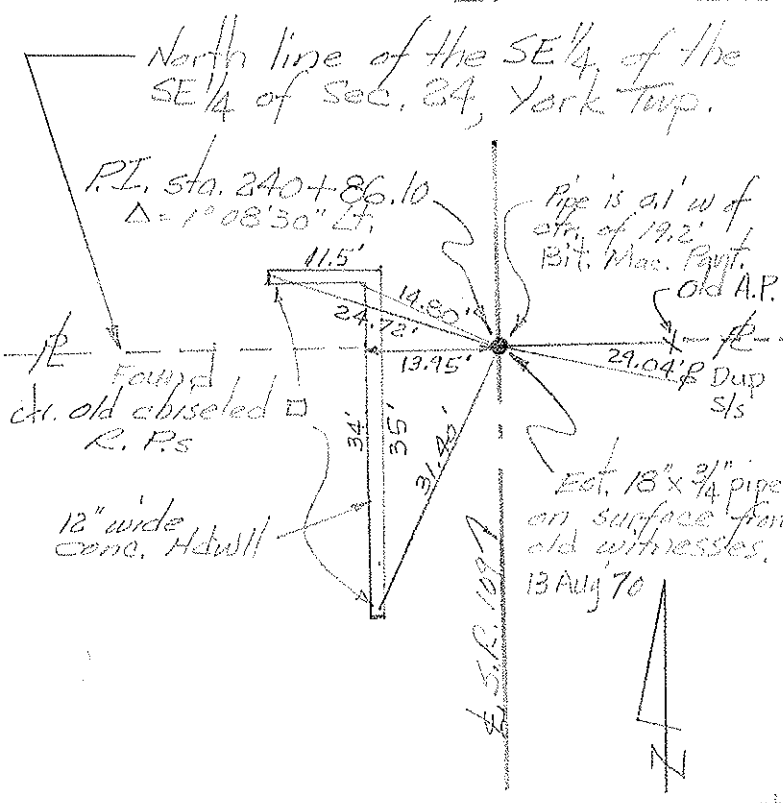 North line of the SE 1/4 of the
SE 1/4 of Sec. 24, York Twp.
P.I. sta. 240+86.10
Δ = 1° 08' 30" Lt.
Pipe is 0.1' w of
ctr. of 19.2'
Bit. Mac. Pavt.
Old A.P.
11.5'
14.80'
24.72'
13.95'
29.04'
Dup
S/S
Found
ctr. old chiseled □
R.P.s
34'
35'
12" wide
conc. Hdwll
Est. 18" x 3/4" pipe
on surface from
old witnesses.
13 Aug '70
℄ S.R. 109
N